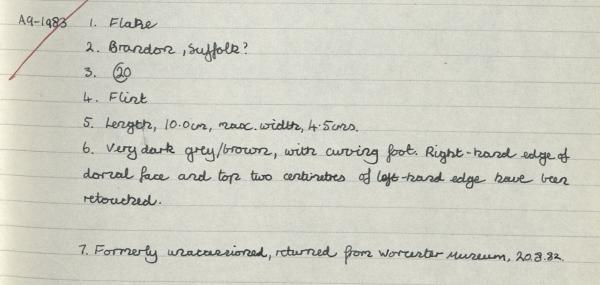 A9-1983 1. Flake
2. Brandon, Suffolk?
3. 20
4. Flint
5. Length, 10.0cm, max. width, 4.5cms.
6. Very dark grey/brown, with curving foot. Right-hand edge of
dorsal face and top two centimetres of left-hand edge have been
retouched.
7. Formerly unacessioned, returned from Worcester Museum, 20.8.82.